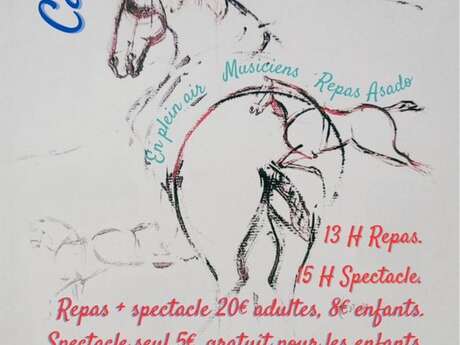 En plein air Musiciens Repas Asado
13 H Repas.
15 H Spectacle.
Repas + spectacle 20€ adultes, 8€ enfants.
Spectacle seul 5€, gratuit pour les enfants.